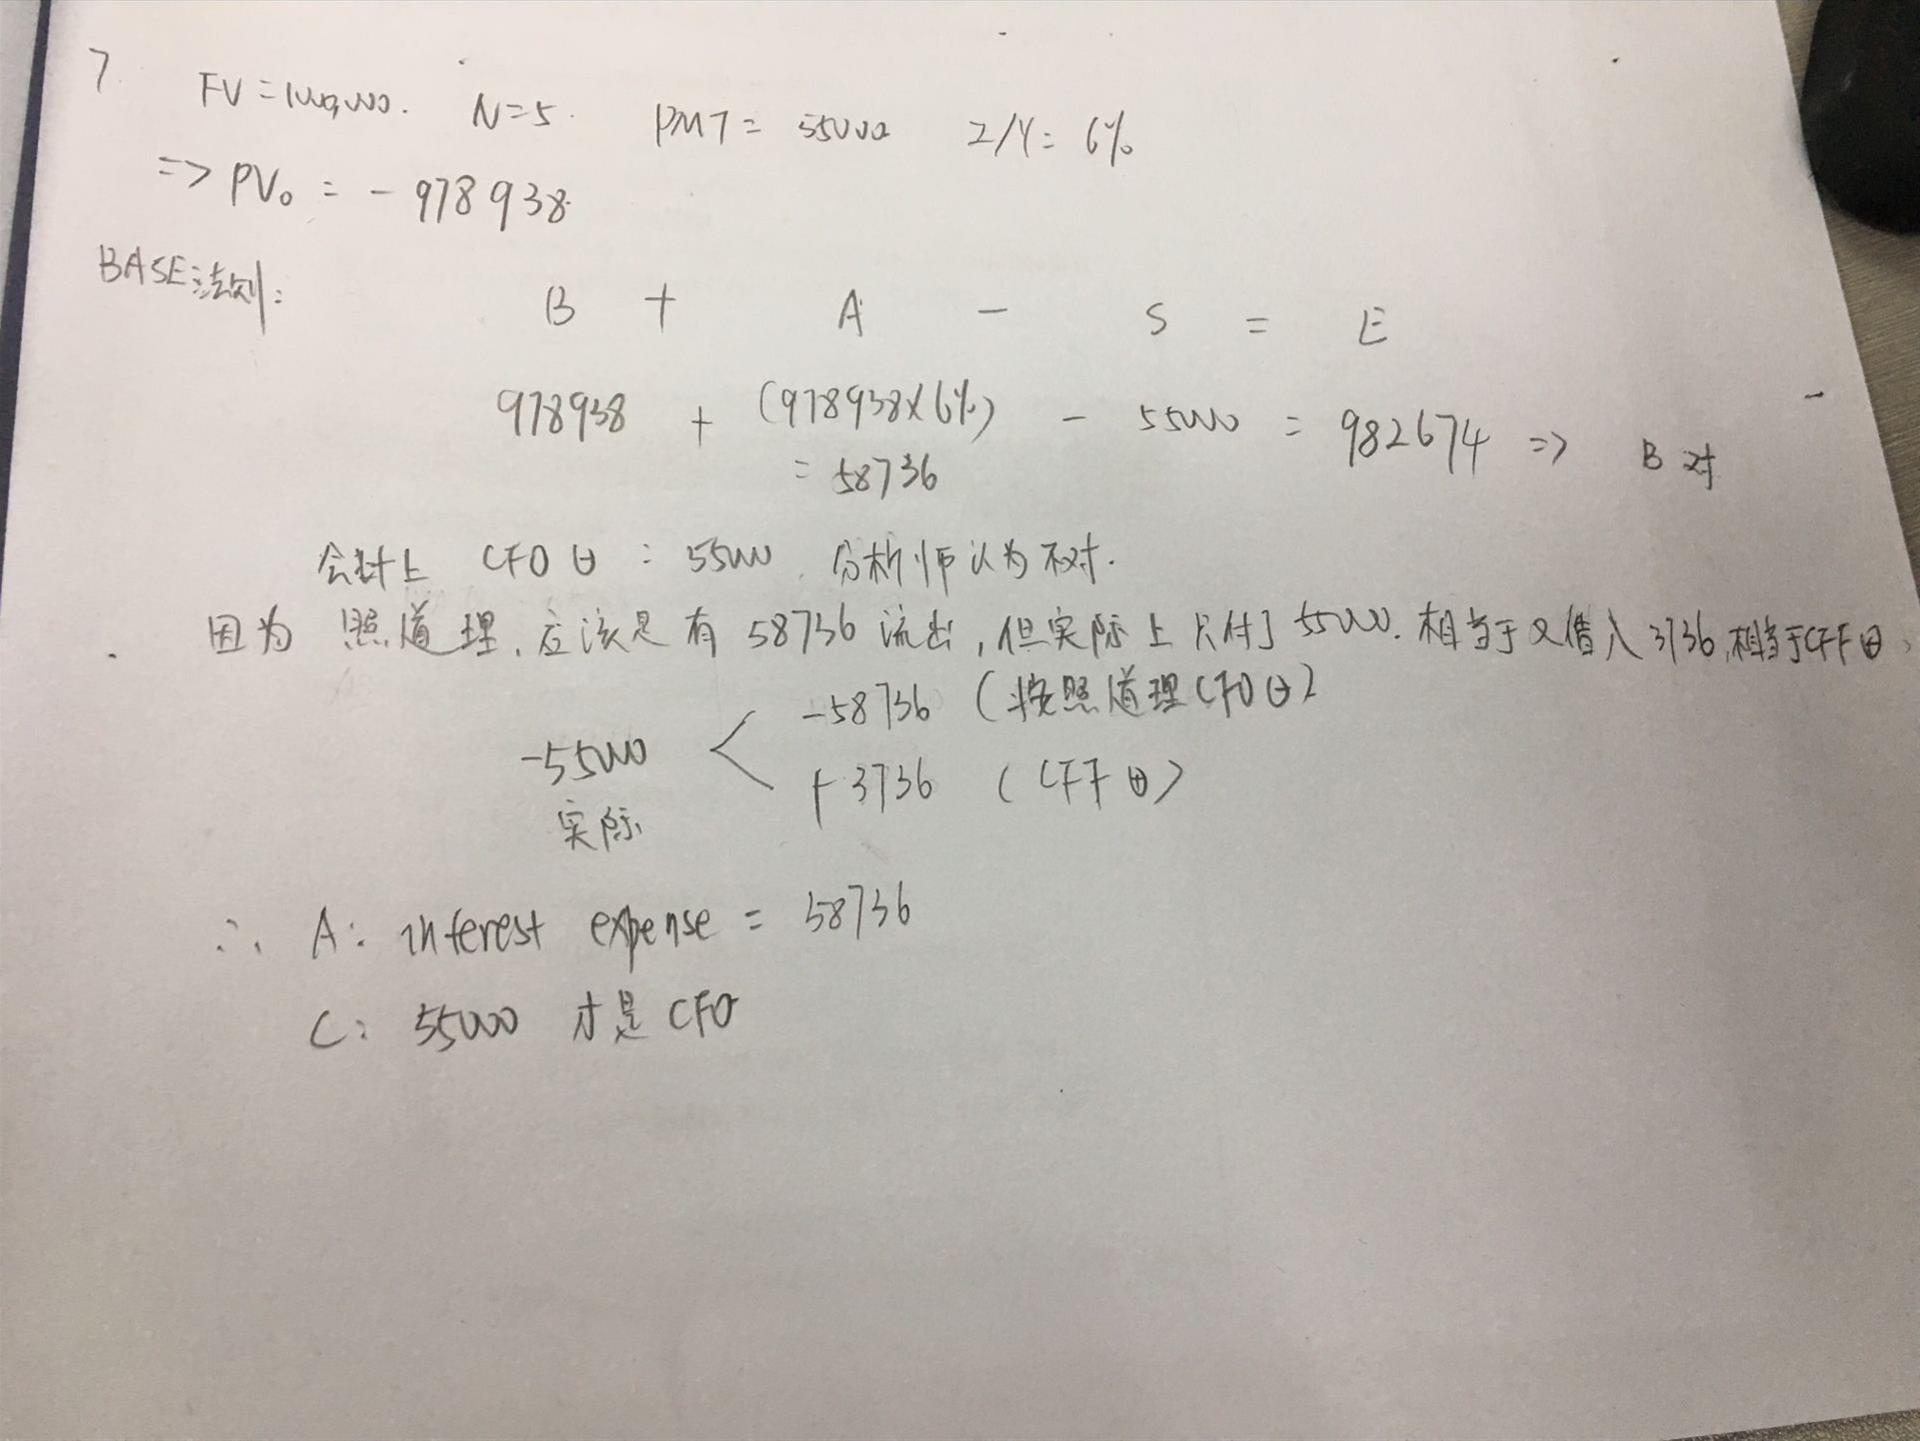 7
FV = 1000,000. N=5. PMT = 55000 I/Y = 6%
=> PV₀ = - 978938
BASE法则:
B + A - S = E
978938 + (978938×6%) - 55000 = 982674 => B 对
= 58736
会计上 CFO ⊖ : 55000, 分析师认为不对.
因为 照道理, 应该是有 58736 流出, 但实际上只付了 55000. 相当于又借入 3736, 相当于CFF ⊕,
-58736 (按照道理 CFO ⊖)
-55000
+3736 (CFF ⊕)
实际
∴ A: interest expense = 58736
C: 55000 才是 CFO